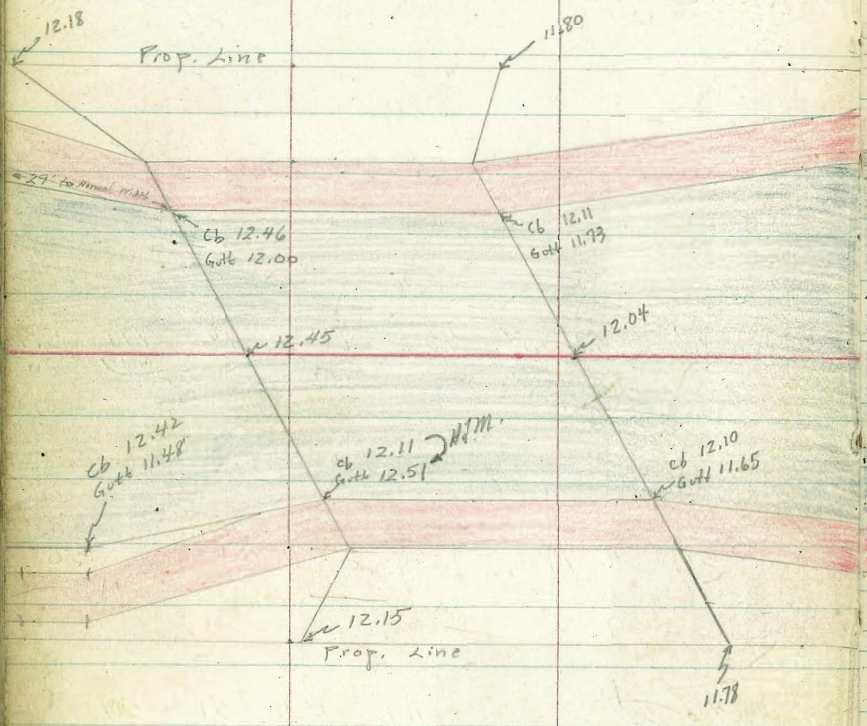 12.18
11.80
Prop. Line
29' to
Cb 12.46
Gutt 12.00
Cb 12.11
Gutt 11.73
12.45
12.04
Cb 12.42
Gutt 11.48
Cb 12.11
Gutt 12.51
H.J.M.
Cb 12.10
Gutt 11.65
12.15
Prop. Line
11.78